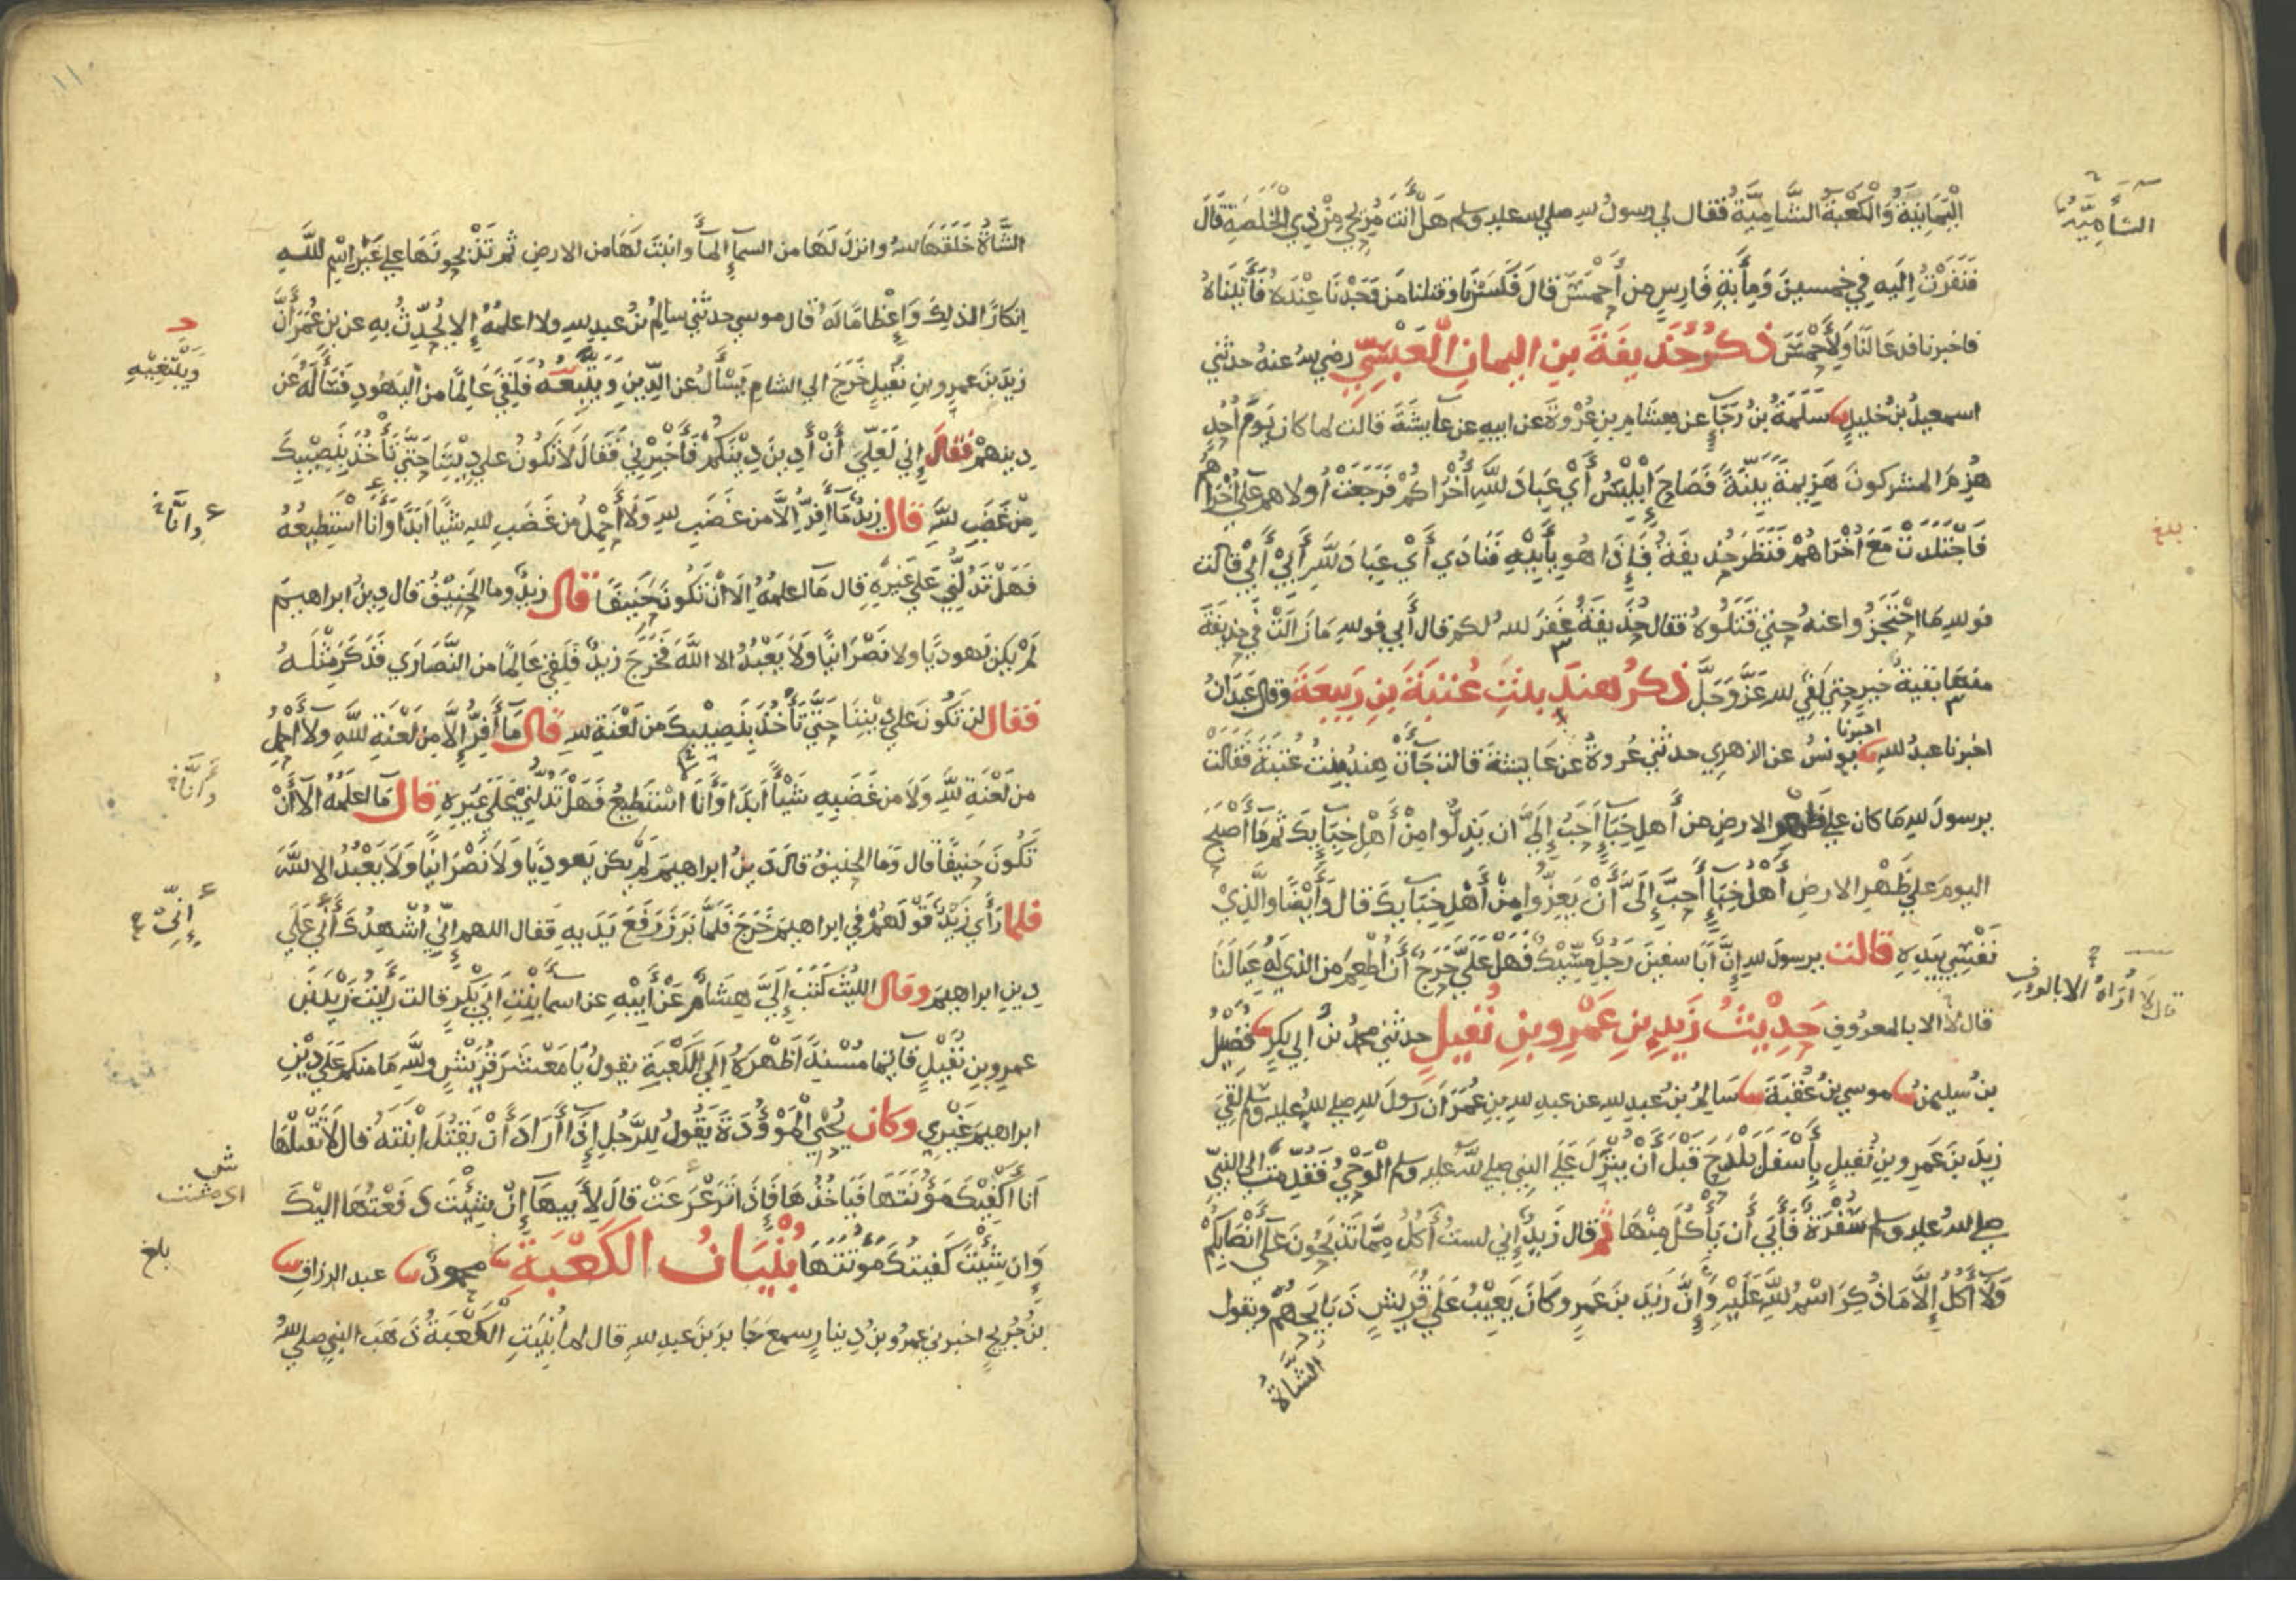 الْيَمَانِيَةُ وَالْكَعْبَةُ الشَّامِيَّةُ فقال لي رسولُ لله صلي لله عليه وسلم هَلْ أَنْتَ مُرِيحِي مِنْ ذِي الْخَلَصَةِ قَالَ
الشَّأمِيَّةُ
فَنَفَرْتُ اِلَيهِ فِي خمسينَ وَمِأيَةِ فَارِسٍ مِن أَحْمَسَ قالَ فَكَسَرْنَا وقتلنا مَن وَجَدْنَا عِنْدَهُ فَأَتَيْنَاهُ
فاخبرناه فدعَا لَنَا وَلِأَحْمَسَ ذِكْرُ حُذَيفَةَ بنِ اليمانِ الْعَبْسِيِّ رضي لله عنهُ حدثني
اسمعيلُ بنُ خليلٍ سَلَمَةُ بنُ رَجَآءٍ عن هِشَامِ بنِ عُرْوَةَ عن ابيهِ عن عَايِشَةَ قالت لما كان يَوْمَ أُحُدٍ
هُزِمَ المشركونَ هَزِيمَةً بَيِّنَةً فَصَاحَ إِبْلِيْسُ أَيْ عِبَادَ للَّهِ أُخْرَاكُمْ فَرَجَعَتْ أُولاهم علي أُخْرَاهُمْ
فَاجْتَلَدَتْ مَعَ اُخْرَاهُمْ فَنَظَرَ حُذيفَةُ فَإِذَا هُو بِأَبِيْهِ فَنَادَي أَيْ عِبَادَ للَّهِ أَبِيْ أَبِيْ قالت
بلغ
فو لله مَا احْتَجَزُوا عنهُ حتي قَتَلُوهُ فقال حُذَيفَةُ غَفَرَ لله لكم قال أَبِي فو لله مَا زَالَتْ فِي حذيفَةَ
منها بَقيةُ خيرٍ حتي لَقِيَ لله عَزَّ وَجَلَّ ذِكرُ هِندَ بِنْتِ عُتبَةَ بنِ رَبِيعَةَ وقال عَبْدَانُ
اخبرنا عبدُ للهِ اخبرنا يونسُ عن الزهري حدثني عُروةُ عن عَايشةَ قالت جَآءَتْ هِندُ بِنْتُ عُتبَةَ فَقَالَتْ
يرسولَ للهِ مَا كان علي ظَهْرِ الارضِ من أَهلِ خِبَآءٍ أَحَبَّ إِلَيَّ ان يَذِلُّوا مِنْ أَهْلِ خِبَآيِكَ ثم مَا أَصْبَحَ
اليومَ علي ظَهْرِ الارضِ أَهْلُ خِبَآءٍ أَحَبَّ إِلَيَّ أَنْ يَعِزُّوا مِنْ أَهْلِ خِبَآيِكَ قال وَأَيْضًا والَّذِيْ
نَفْسِي بيَدِهِ قالت يرسولَ للهِ إِنَّ أَبَا سفينَ رَجُلٌ مِسِّيْكٌ فَهَلْ عَلَيَّ حَرَجٌ أَنْ أُطْعِمَ من الذي لَهُ عِيَالَنَا
قال لَا أُرَاهُ الا بالمعروفِ
قال لَا الا بالمعروفِ حَدِيْثُ زَيدِ بنِ عَمْرِو بنِ نُفَيلٍ حدثني محمدُ بنُ ابي بَكرٍ فُضَيْلُ
بنُ سليمنَ موسي بنُ عُقبَةَ سَالِمُ بنُ عبدِ للهِ عن عبدِ للهِ بنِ عُمَرَ أن رسولَ لله صلي لله عليه وسلم لَقِيَ
زيدَ بنَ عَمرِو بنِ نُفيلٍ بِأَسْفَلَ بَلْدَحَ قَبْلَ أَنْ يُنَزَّلَ عَلَي النبي صلي لله عليه وسلم الْوَحْيُ فَقُدِّمَت الي النبي
صلي لله عليه وسلم سُفْرَةٌ فَأَبَي أَن يَأكُلَ مِنْهَا ثم قال زيدٌ إِني لستُ أَكُلُ مِمَّا تَذبَحُونَ عَلَي أَنْصَابِكُمْ
وَلَا أَكُلُ إِلَّا مَا ذُكِرَ اسْمُ للَّهِ عَلَيْهِ وَإِنَّ زَيْدَ بنَ عَمرٍو كَانَ يَعِيْبُ عَلَي قُرَيْشٍ ذَبَايِحَهُمْ ويقول
الشَّاةُ
١١
الشَّاةُ خَلَقَهَا لله وانزلَ لَهَا من السمآءِ المآءَ وانبتَ لَهَا من الارضِ ثم تَذْبحونَهَا علي غَيْرِ اسْمِ للَّهِ
اِنكارًا لذلِكَ وَإِعْظَامًا لَهُ قال موسي حدثني سالِمُ بنُ عبدِ للهِ ولا اعلمُهُ إِلا يُحَدِّثُ بِهِ عن بنِ عُمَرَ أَنَّ
زيدَ بنَ عمرِو بنِ نُفَيلٍ خَرَجَ الي الشامِ يَسْأَلُ عن الدِّينِ وَيَتَّبِعُهُ فلَقِيَ عَالِمًا من اليَهُودِ فَسَأَلَهُ عَن
وَيَبْتَغِيْهِ
دِينِهِمْ فَقَالَ إِني لَعَلِّي أَنْ أَدِينَ دِيْنَكُمْ فَأَخْبِرْنِي فَقَالَ لَا تَكُونُ علي دِيْنِنَا حَتَّي تَأْخُذَ بِنَصِيْبِكَ
مِنْ غَضَبِ للَّهِ قال زيدٌ مَا أَفِرُّ اِلَّا من غَضَبِ للهِ وَلَا أَحْمِلُ من غَضَبِ للهِ شيْأً اَبَدًا وَأَنَا أَسْتَطِيعُهُ
وانَّا
فَهَلْ تَدُلُّنِي عَلَي غَيرِهِ قال مَآ اعلمُهُ اِلَّا أنْ تَكُونَ حَنِيفًا قال زيدٌ وما الحَنِيْفُ قال دِينُ ابراهيمَ
لَمْ يكن يهوديًّا ولا نَصْرَانيًّا وَلَا يَعْبُدُ الا اللَّهَ فَخَرَجَ زيدٌ فَلَقِيَ عَالِمًا من النَّصَارَي فَذَكَرَ مِثْلَهُ
فقال لن تَكُونَ علي دِيْنِنَا حَتَّي تَأْخُذَ بِنَصِيْبِكَ من لَعْنَةِ للهِ قال مَآ أَفِرُّ إِلَّا مِن لَعْنَةِ للَّهِ ولَا أَحْمِلُ
من لَعْنَةِ للَّهِ وَلَا من غَضَبِهِ شَيْأً أَبَدًا وَأَنَا أَسْتَطِيعُ فَهَلْ تَدُلُّنِيْ عَلَي غَيرِهِ قال مَآ اعلمُهُ الا أَنْ
وَأنَّا
تَكُونَ حَنِيفًا قال وَمَا الحنيفُ قالَ دِينُ ابراهيمَ لم يكن يَهوديًّا وَلَا نَصْرَانيًّا وَلَا يَعْبُدُ الا للَّهَ
فلما رَأَي زَيْدٌ قَوْلَهُمْ في ابراهيمَ خَرَجَ فَلَمَّا بَرَزَ رَفَعَ يَدَيهِ فقال اللهم إِنِّي أُشْهِدُكَ أَنِّي عَلَي
إِنِّيْ
دِينِ ابراهيمَ وقال الليثُ كَتَبَ إِلَيَّ هِشَامٌ عَنْ أَبِيْهِ عن اسمآءَ بِنْتِ ابي بَكْرٍ قالت رَأَيْتُ زَيْدَ بْنَ
عمرِو بنِ نُفَيْلٍ قَآئِمًا مُسْنِدًا ظَهْرَهُ إِلَي الْكَعْبَةِ يقولُ يَا مَعْشَرَ قُرَيْشٍ وللَّهِ مَا منكم عَلَي دِيْنِ
ابراهيمَ غَيْرِي وكان يُحْيِي الْمَوْؤُدَةَ يَقُولُ لِلرَّجُلِ إِذَا أَرَادَ أَنْ يَقْتُلَ ابْنَتَهُ قال لَا تَقْتُلْهَا
أَنَا أَكْفِيْكَ مَؤُنَتَهَا فَيَاخُذُهَا فَإِذَا تَرَعْرَعَتْ قالَ لِأَبيهَا إِنْ شِيْتَ دَفَعْتُهَا اليْكَ
وَاِن شِيْتَ كَفيتكَ مَؤُنَتَهَا بُنْيَانُ الكَعْبَةِ محمودٌ عبد الرزاقِ
بلغ
بنُ جُرَيجٍ اخبرني عمرُو بنُ دِينارٍ سمعَ جَابرَ بنَ عبدِ للهِ قال لما بُنِيَتِ الْكَعْبَةُ ذَهَبَ النبي صلي لله